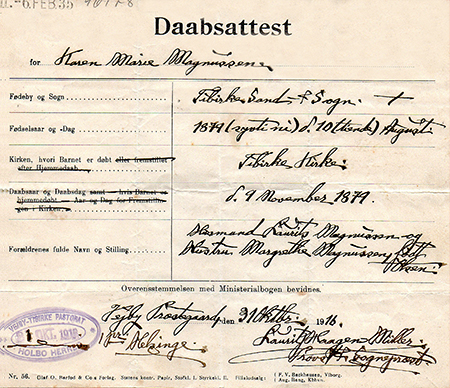 6.FEB.35
Daabsattest
for Karen Marie Magnussen.
Fødeby og Sogn Tibirke Sand f Sogn.
Fødselsaar og -Dag 1879 (syvti ni) d. 10 (tiende) August.
Kirken, hvori Barnet er døbt eller fremstillet
efter Hjemmedaab. Tibirke Kirke.
Daabsaar og Daabsdag samt hvis Barnet er
hjemmedøbt Aar og Dag for Fremstillin-
gen i Kirken. d. 9 November 1879.
Husmand Laurits Magnussen og
Forældrenes fulde Navn og Stilling Hustru Margrethe Magnussen født
Olsen.
Overensstemmelsen med Ministerialbogen bevidnes.
Vejby Præstegaard den 31 1916
pr. Helsinge.
VEJBY-TIBIRKE PASTORAT
1 OKT. 1916
HOLBO HERRED
Laurits Kaagen Müller
Provst Sognepræst
Nr. 56. Olaf O. Barfod & Co.s Forlag.
F. V. Backhausen, Viborg.
Aug. Bang, Kbhvn.